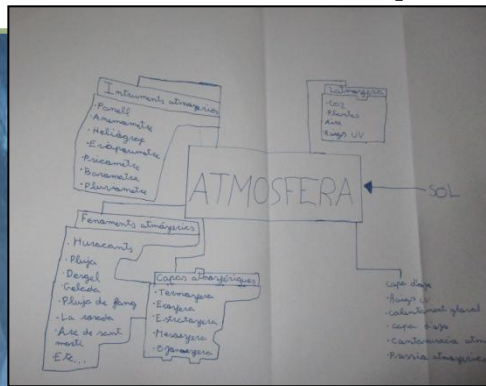 Instruments atmosfèrics
· Panell
Anemometre
· Heliògraf
· Evaporimetre
· Psicometre
· Barometre
· Pluviometre
L'atmosfera
· CO2
· Plantes
· Aire
Raigs UV
ATMOSFERA
SOL
Fenoments atmósferics
· Huracants
· Pluja
· Desgel
· Gelada
· Pluja de fang
· La rosada
· Arc de sant
martí
Etc...
Capas atmosfériques
· Termosfera
· Ecosfera
· Estratosfera
· Mesosfera
Capa d'ozo
· Raigs UV
· calentament global
· capa d'ozo